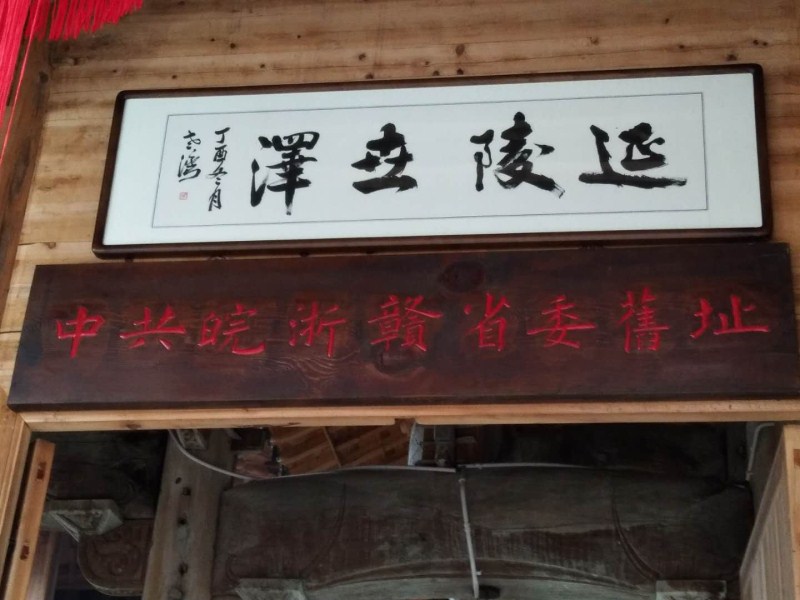 延陵世澤
丁酉冬月
中共皖浙贛省委舊址